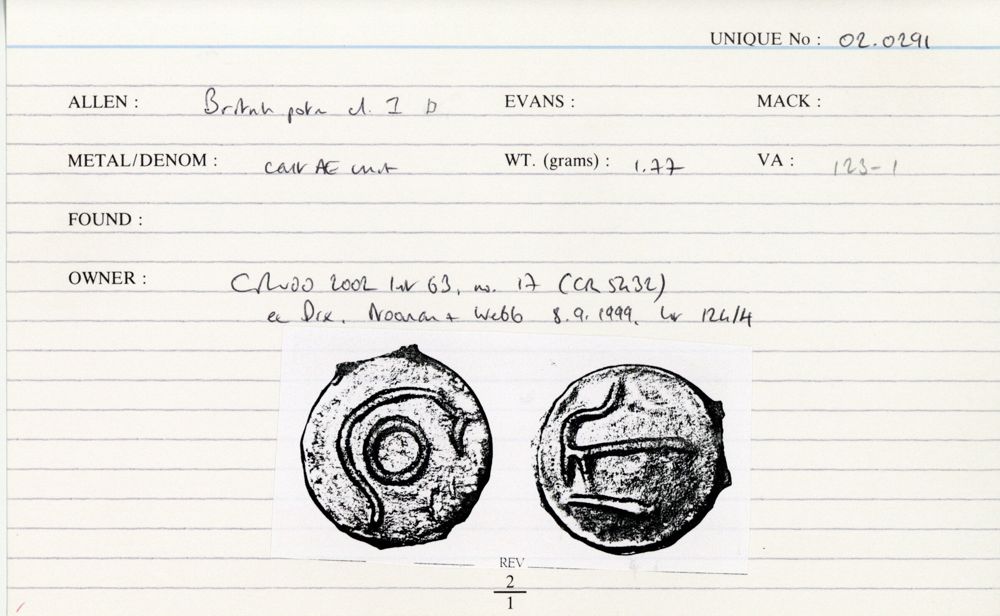 UNIQUE No : 02.0291
ALLEN : British potin cl. I D EVANS : MACK :
METAL/DENOM : cast AE unit WT. (grams) : 1.77 VA : 123-1
FOUND :
OWNER : 2002 list 63, no. 17 (CR 5432)
ex Dix, Noonan + Webb 8.9.1999, lot 124/4
REV
2
1